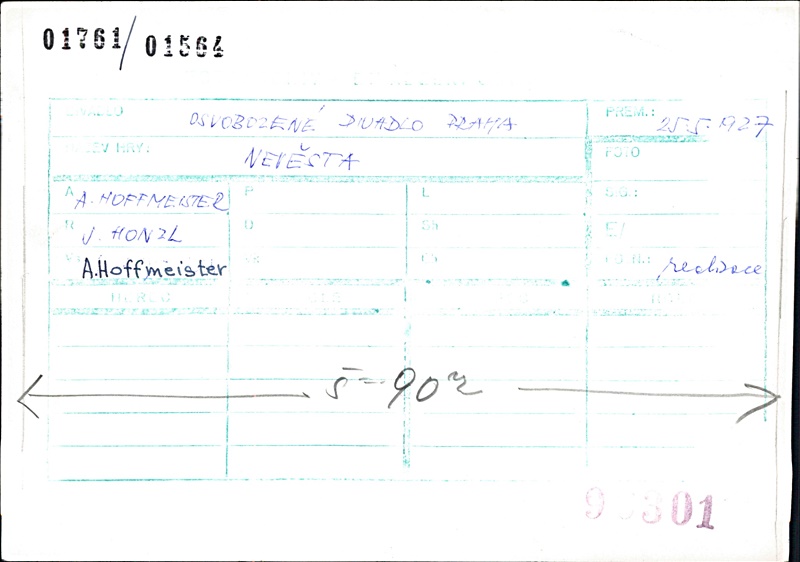 01761/01564
DIVADLO OSVOBOZENÉ DIVADLO PRAHA PREM.: 25.5.1927
NÁZEV HRY: NEVĚSTA FOTO
A A. HOFFMEISTER P L S.G.:
R J. HONZL O Sh E/
A.Hoffmeister realizace
HEREC
š = 90
301